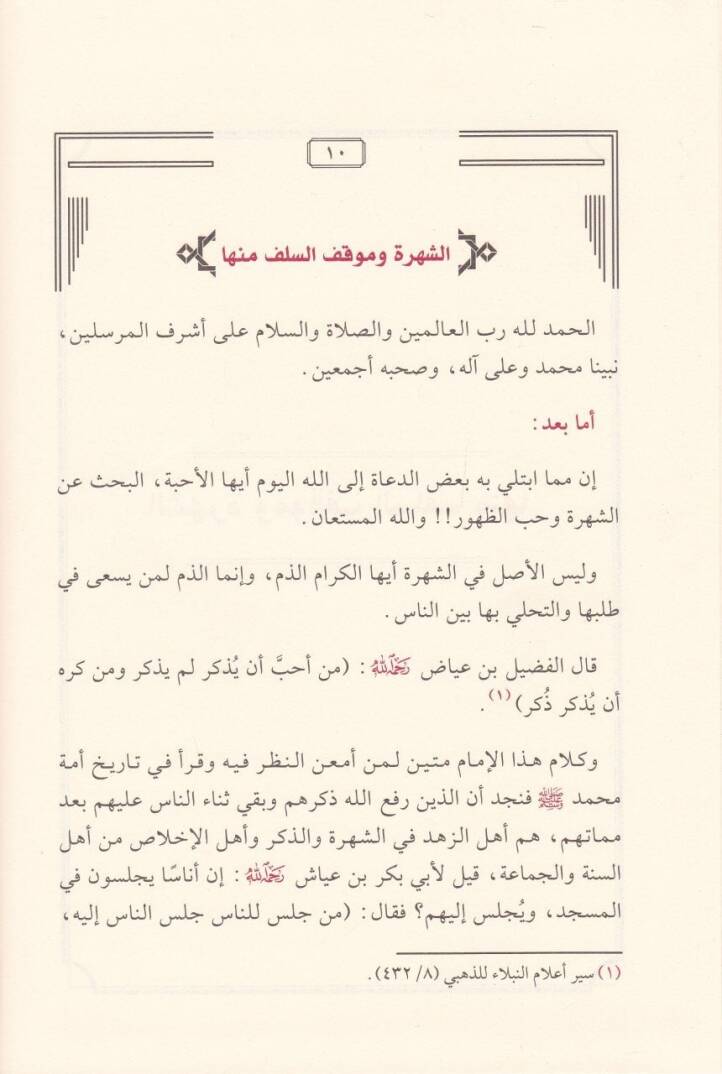 ١٠
الشهرة وموقف السلف منها
الحمد لله رب العالمين والصلاة والسلام على أشرف المرسلين،
نبينا محمد وعلى آله، وصحبه أجمعين.
أما بعد:
إن مما ابتلي به بعض الدعاة إلى الله اليوم أيها الأحبة، البحث عن
الشهرة وحب الظهور!! والله المستعان.
وليس الأصل في الشهرة أيها الكرام الذم، وإنما الذم لمن يسعى في
طلبها والتحلي بها بين الناس.
قال الفضيل بن عياض رحمه الله: (من أحبَّ أن يُذكر لم يذكر ومن كره
أن يُذكر ذُكر)(١).
وكلام هذا الإمام متين لمن أمعن النظر فيه وقرأ في تاريخ أمة
محمد ﷺ فنجد أن الذين رفع الله ذكرهم وبقي ثناء الناس عليهم بعد
مماتهم، هم أهل الزهد في الشهرة والذكر وأهل الإخلاص من أهل
السنة والجماعة، قيل لأبي بكر بن عياش رحمه الله: إن أناسًا يجلسون في
المسجد، ويُجلس إليهم؟ فقال: (من جلس للناس جلس الناس إليه،
(١) سير أعلام النبلاء للذهبي (٨/ ٤٣٢).